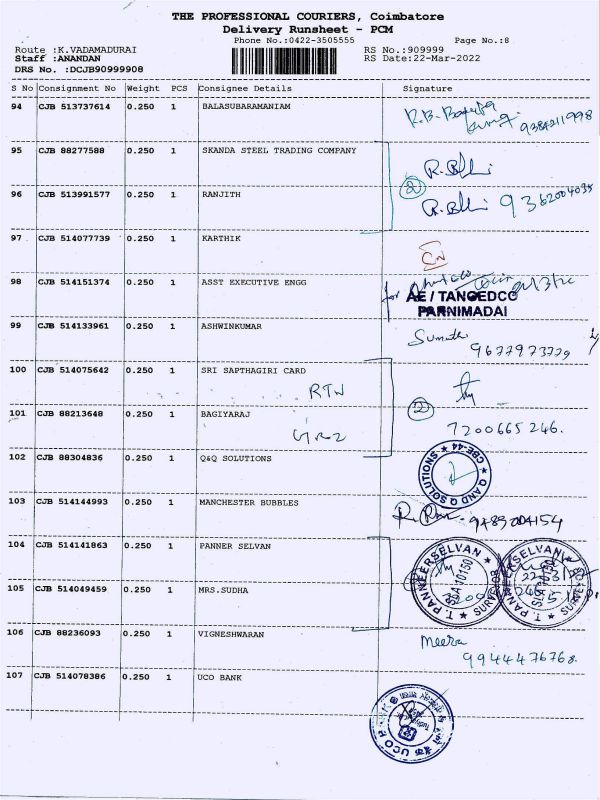 THE PROFESSIONAL COURIERS, Coimbatore
Delivery Runsheet - PCM
Phone No.:0422-3505555 Page No.:8
Route :K.VADAMADURAI RS No.:909999
Staff :ANANDAN RS Date:22-Mar-2022
DRS No. :DCJB90999908
S No Consignment No Weight PCS Consignee Details Signature
94 CJB 513737614 0.250 1 BALASUBARAMANIAM
9384211998
95 CJB 88277588 0.250 1 SKANDA STEEL TRADING COMPANY
96 CJB 513991577 0.250 1 RANJITH
2
9362004035
97 CJB 514077739 0.250 1 KARTHIK
98 CJB 514151374 0.250 1 ASST EXECUTIVE ENGG
for AE / TANGEDCO
PARNIMADAI
99 CJB 514133961 0.250 1 ASHWINKUMAR
9677973779
100 CJB 514075642 0.250 1 SRI SAPTHAGIRI CARD
RTN
2
101 CJB 88213648 0.250 1 BAGIYARAJ
7200665246.
102 CJB 88304836 0.250 1 Q&Q SOLUTIONS
Q AND Q SOLUTIONS ★ CBE-44 ★
103 CJB 514144993 0.250 1 MANCHESTER BUBBLES
9789204154
104 CJB 514141863 0.250 1 PANNER SELVAN
T. PANNEERSELVAN ★ SURVEYOR ★
T. PANNEERSELVAN ★ SURVEYOR ★
105 CJB 514049459 0.250 1 MRS.SUDHA
106 CJB 88236093 0.250 1 VIGNESHWARAN
Meera
9944476768.
107 CJB 514078386 0.250 1 UCO BANK
UCO BANK